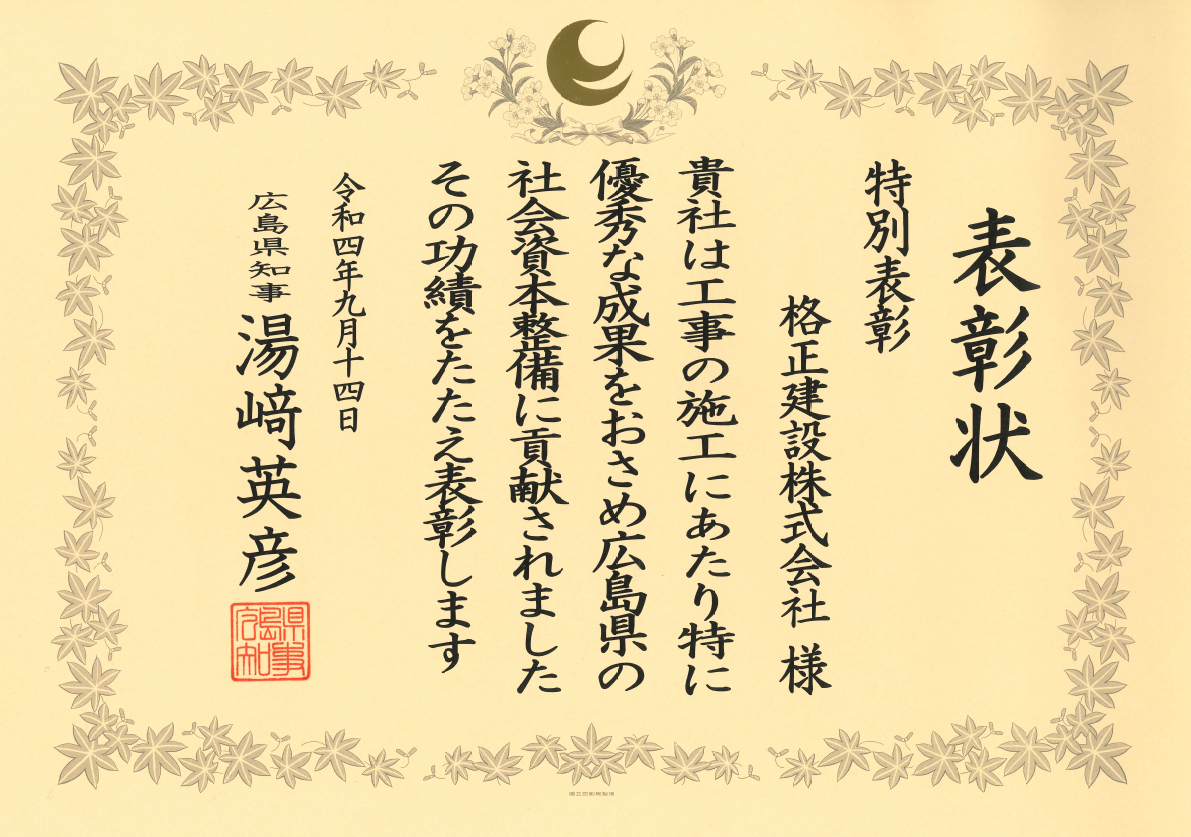 表彰状
特別表彰
格正建設株式会社 様
貴社は工事の施工にあたり特に
優秀な成果をおさめ広島県の
社会資本整備に貢献されました
その功績をたたえ表彰します
令和四年九月十四日
広島県知事 湯﨑英彦